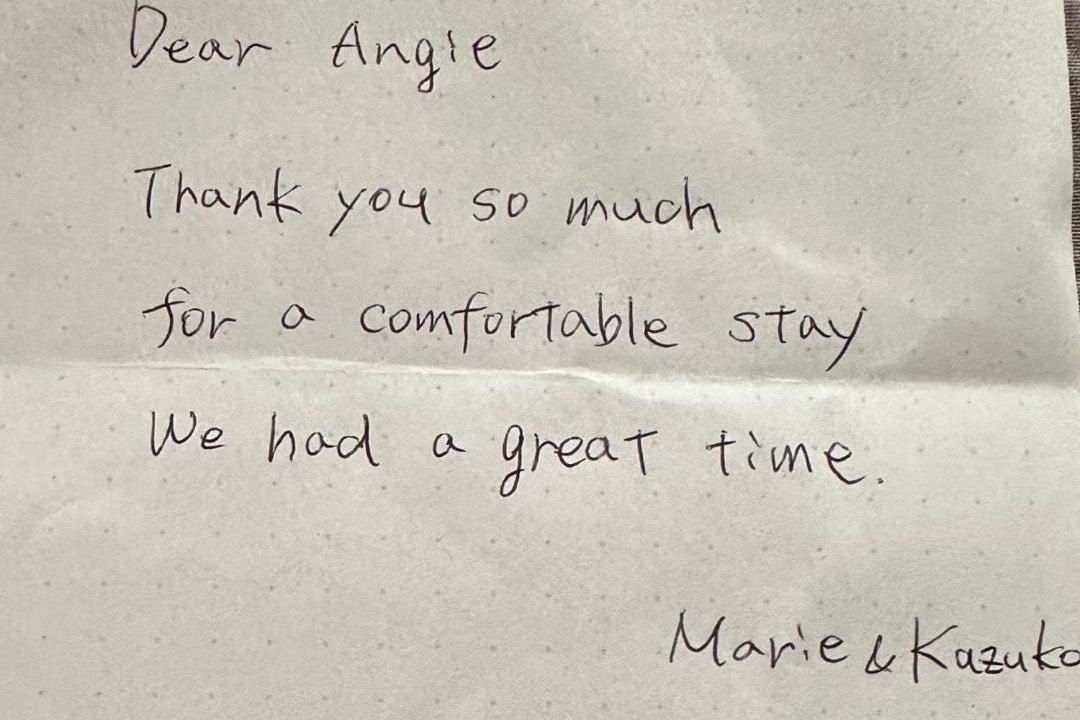 Dear Angie
Thank you so much
for a comfortable stay
We had a great time.
Marie & Kazuko